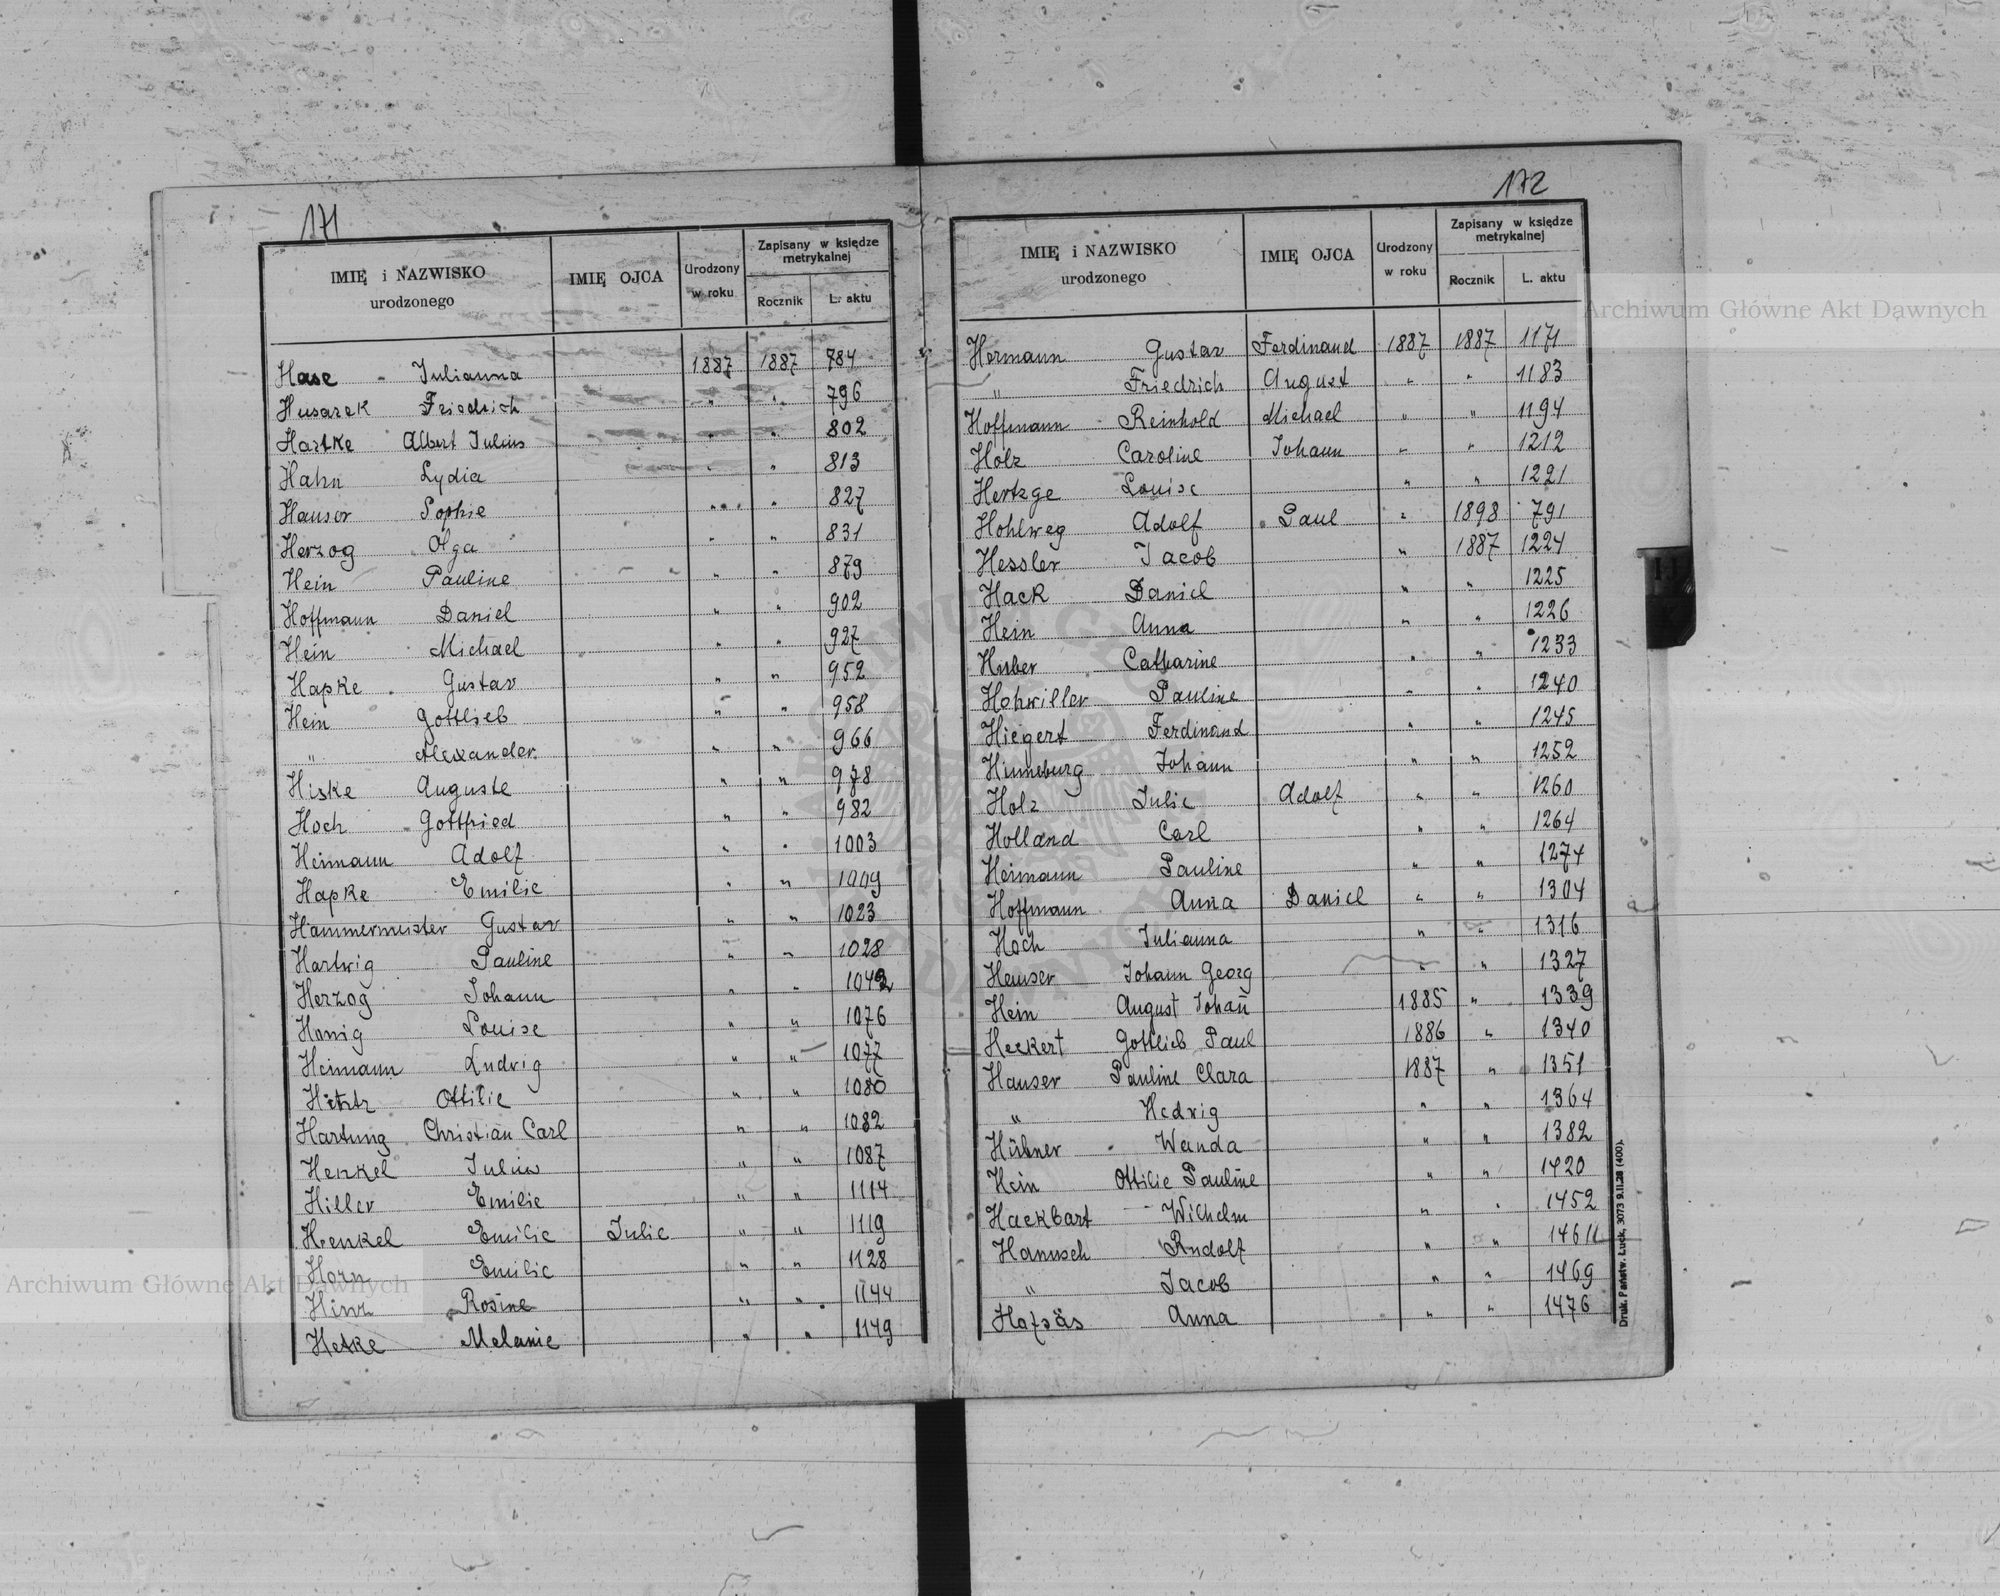 171
IMIĘ i NAZWISKO urodzonego IMIĘ OJCA Urodzony w roku Zapisany w księdze metrykalnej Rocznik L. aktu
Hase - Julianna 1887 1887 784
Husarek Friedrich " " 796
Hartke Albert Julius " " 802
Hahn Lydia " " 813
Hauser Sophie " " 827
Herzog Olga " " 831
Hein Pauline " " 879
Hoffmann Daniel " " 902
Hein Michael " " 927
Hapke Gustav " " 952
Hein Gottlieb " " 958
" Alexander " " 966
Hiske Auguste " " 978
Hoch Gottfried " " 982
Heimann Adolf " " 1003
Hapke Emilie " " 1009
Hammermeister Gustav " " 1023
Hartwig Pauline " " 1028
Herzog Johann " " 1042
Honig Louise " " 1076
Heimann Ludvig " " 1077
Ottilie " " 1080
Hartung Christian Carl " " 1082
Henkel Julius " " 1087
Hiller Emilie " " 1114
Henkel Emilie Julie " " 1119
Horn Emilie " " 1128
Hinz Rosine " " 1144
Hetke Melanie " " 1149
172
IMIĘ i NAZWISKO urodzonego IMIĘ OJCA Urodzony w roku Zapisany w księdze metrykalnej Rocznik L. aktu
Hermann Gustav Ferdinand 1887 1887 1171
" Friedrich August " " 1183
Hoffmann Reinhold Michael " " 1194
Holz Caroline Johann " " 1212
Hertzge Louise " " 1221
Hohlweg Adolf Paul " 1898 791
Hessler Jacob " 1887 1224
Hack Daniel " " 1225
Hein Anna " " 1226
Huber Catharine " " 1233
Hohwiller Pauline " " 1240
Hiegert Ferdinand " " 1245
Hinneburg Johann " " 1252
Holz Julie Adolf " " 1260
Holland Carl " " 1264
Heimann Pauline " " 1274
Hoffmann Anna Daniel " " 1304
Hoch Julianna " " 1316
Heuser Johann Georg " " 1327
Hein August Johañ 1885 " 1339
Heckert Gottlieb Paul 1886 " 1340
Hauser Pauline Clara 1887 " 1351
" Hedvig " " 1364
Hübner Wanda " " 1382
Hein Ottilie Pauline " " 1420
Hackbart Wilhelm " " 1452
Hanusch Rudolf " "
" Jacob " " 1469
Anna " " 1476
Druk. Państw. Łuck, 3073 9.II.28 (400).
Archiwum Główne Akt Dawnych
Archiwum Główne Akt Dawnych